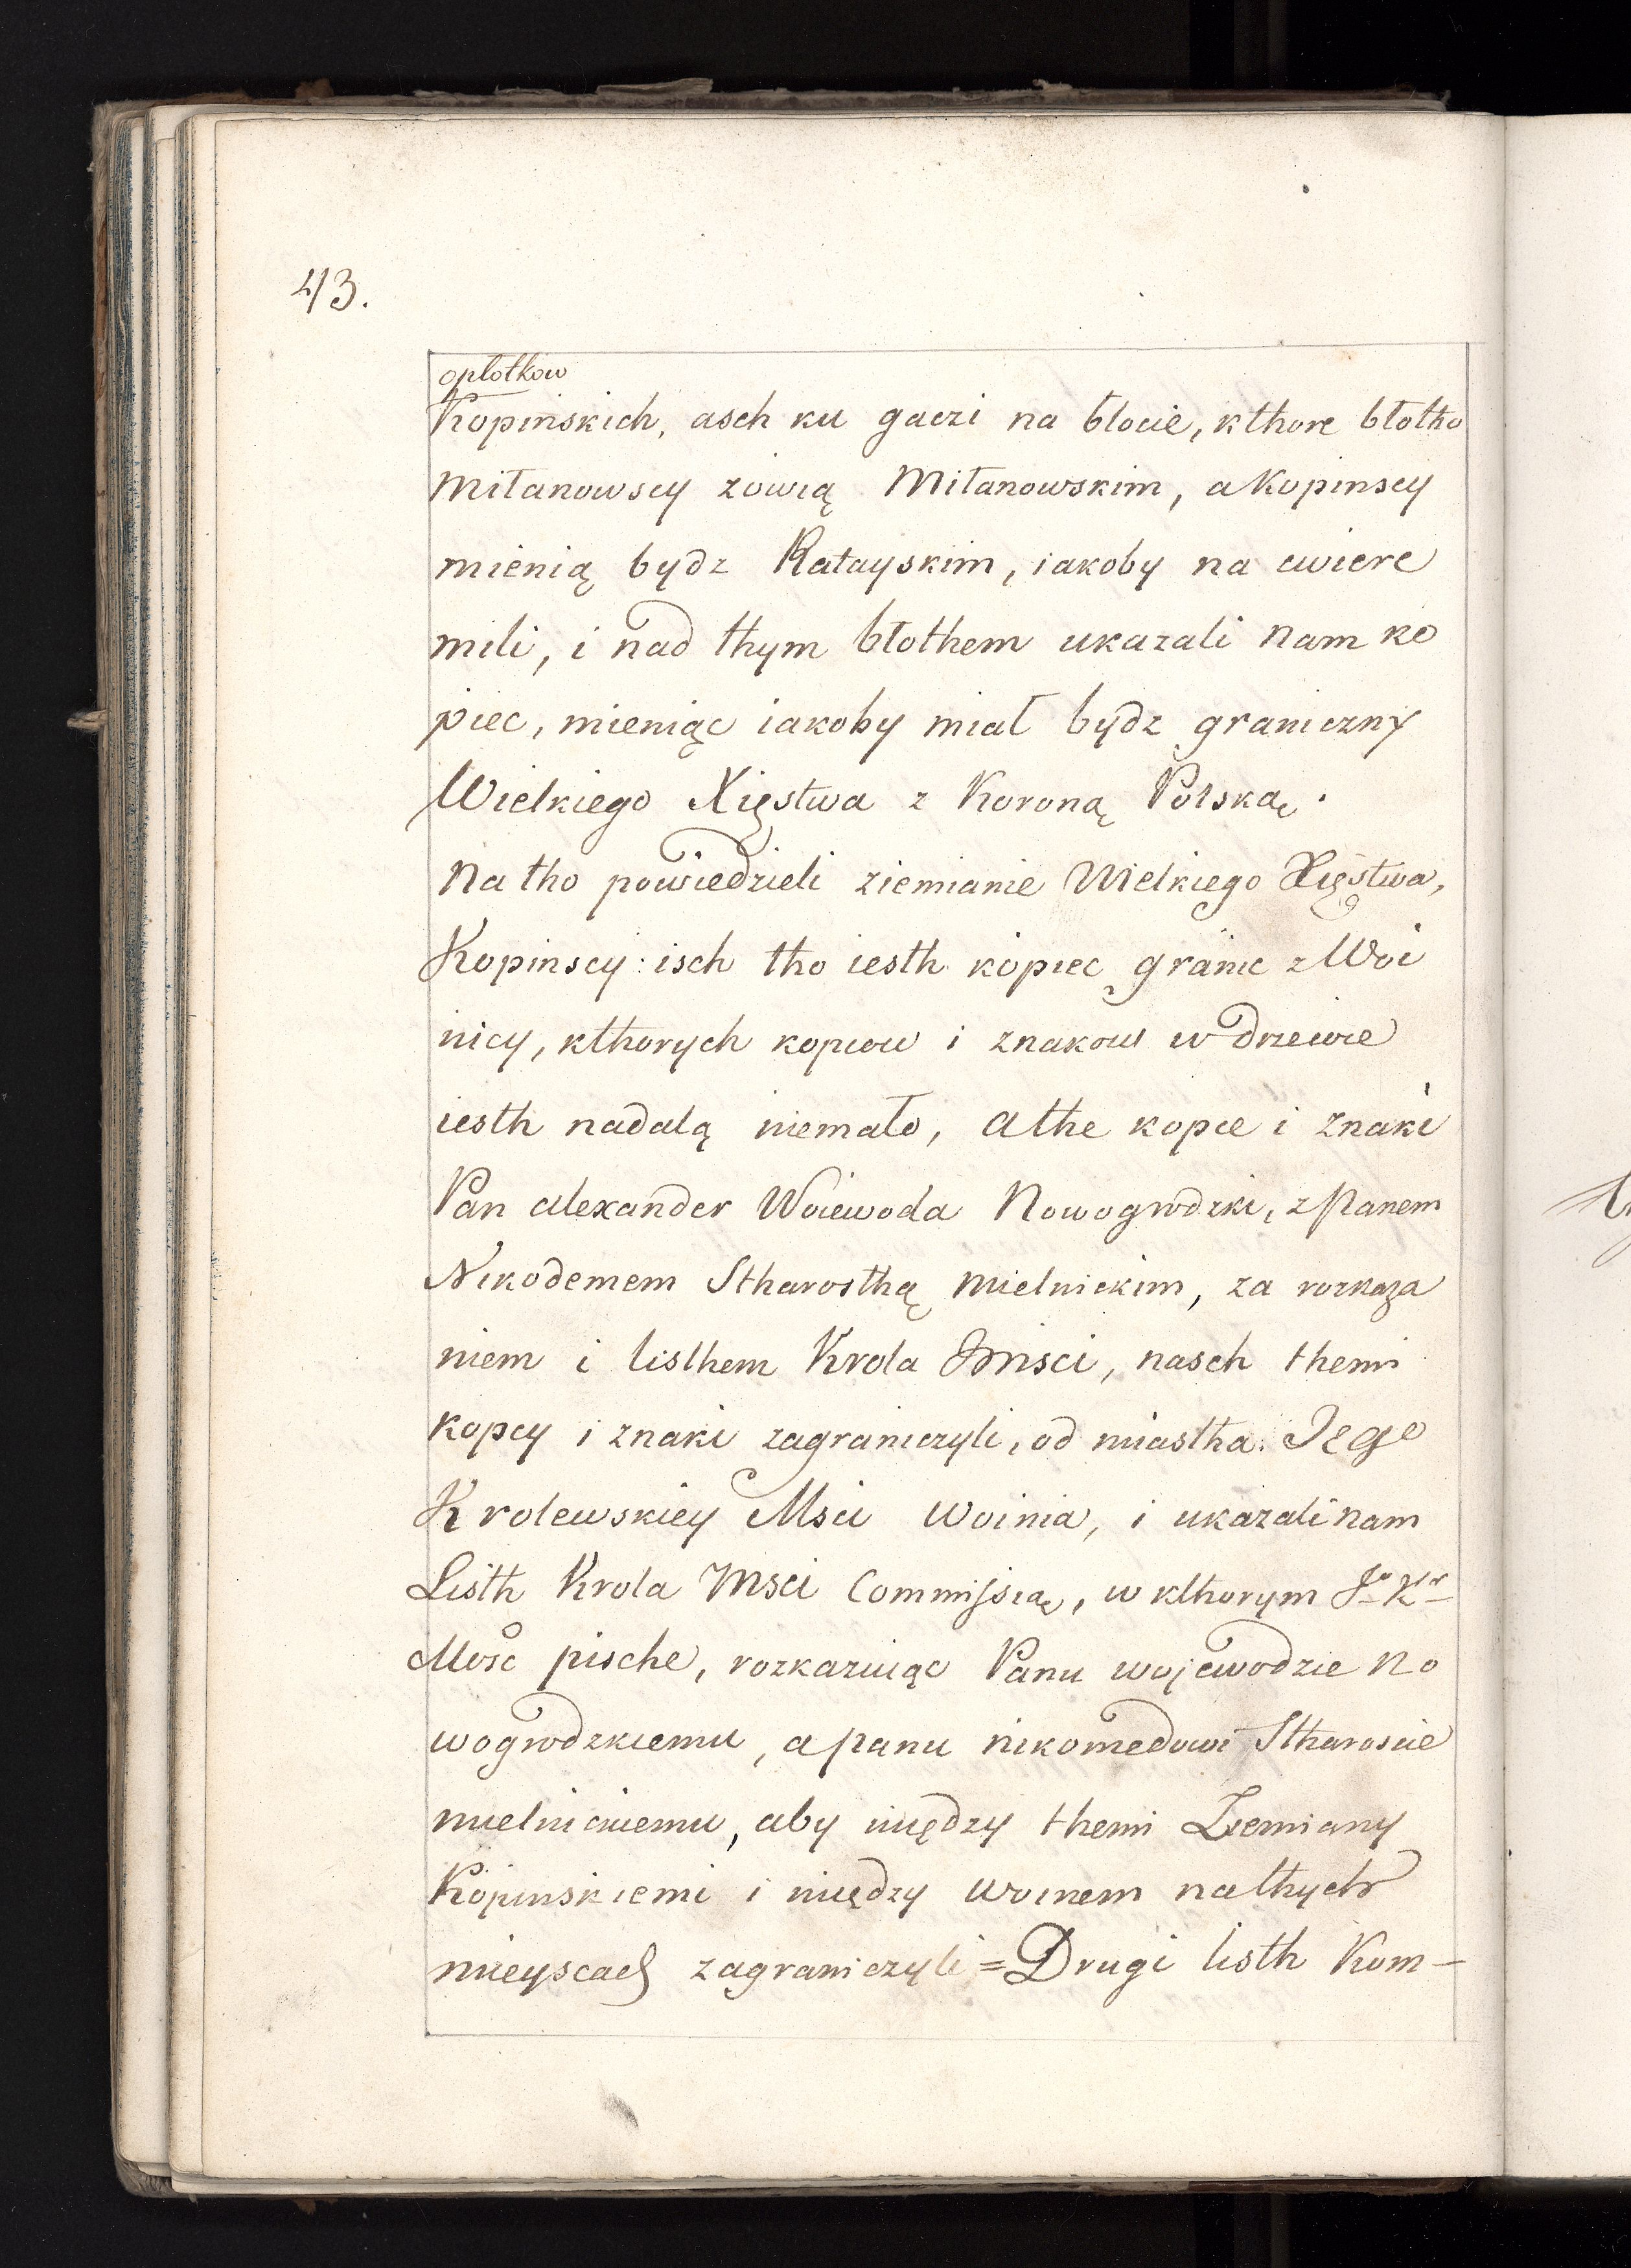 43.
opłotkow
Kopinskich, asch ku gaczi na błocie, kthore błotho
Miłanowscy zowią Miłanowskim, a Kopinscy
mienią bydz Ratayskim, iakoby na cwierc
mili, i nad thym błothem ukazali nam ko
piec, mieniąc iakoby miał bydz graniczny
Wielkiego Xięstwa z Koroną Polską.
Na tho powiedzieli ziemianie Wielkiego Xięstwa,
Kopinscy: isch tho iesth kopiec granic z Woi
nicy, kthorych kopcow i znakow w drzewie
iesth nadalą niemało, a the kopce i znaki
Pan Alexander Woiewoda Nowogrodzki, z Panem
Nikodemem Stharosthą Mielnickim, za rozkaza
niem i listhem Krola Jmsci, nasch themi
kopcy i znaki zagraniczyli, od miastha Jego
Krolewskiey Msci Woinia, i ukazali nam
Listh Krola Jmsci Commissią, w kthorym Jo Kr
Mość pische, rozkazuiąc Panu wojewodzie No
wogrodzkiemu, a panu nikomedowi Stharoscie
mielnickiemu, aby między themi Ziemiany
Kopinskiemi i między Woinem na thych
mieyscach zagraniczyli = Drugi listh Kom-